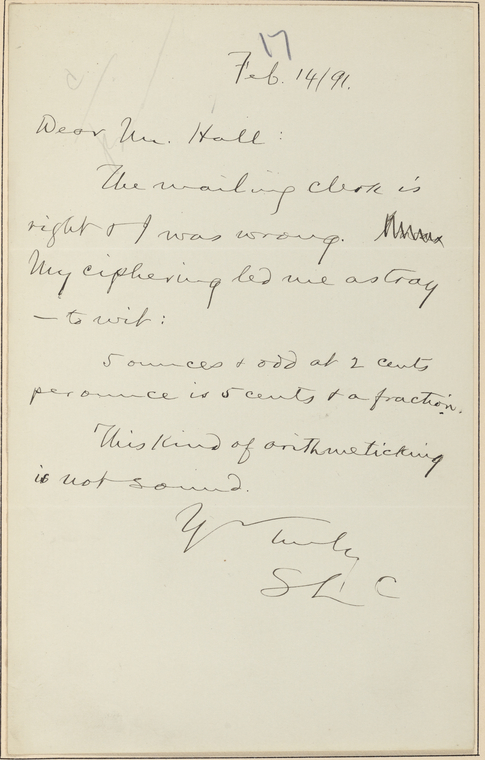 17
Feb. 14/91.
Dear Mr. Hall:
The mailing clerk is
right & I was wrong.
My ciphering led me astray
— to wit:
5 ounces & odd at 2 cents
per ounce is 5 cents & a fraction.
This kind of arithmeticking
is not sound.
Yrs truly
S L C